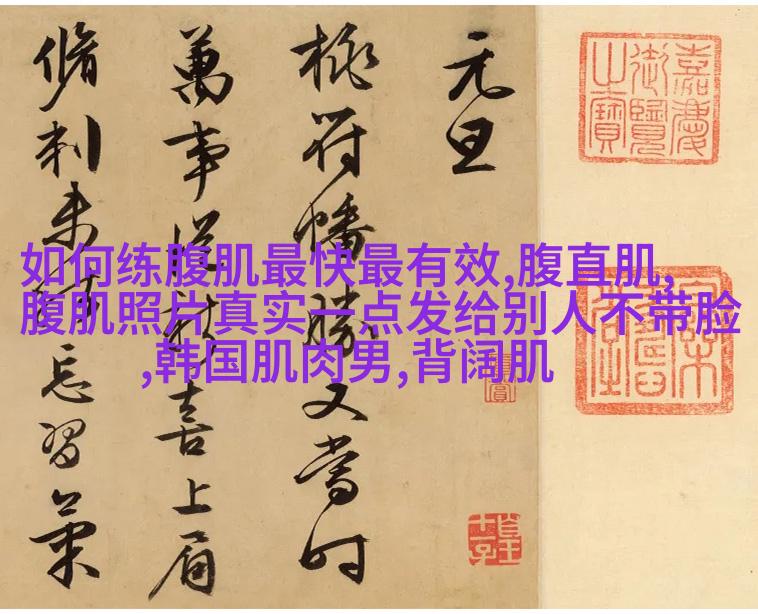 嘉慶御覽之寶
元旦
桃符幡勝又當时
萬事從喜上眉
脩未忘習
如何练腹肌最快最有效,腹直肌,
腹肌照片真实一点发给别人不带脸
,韩国肌肉男,背阔肌